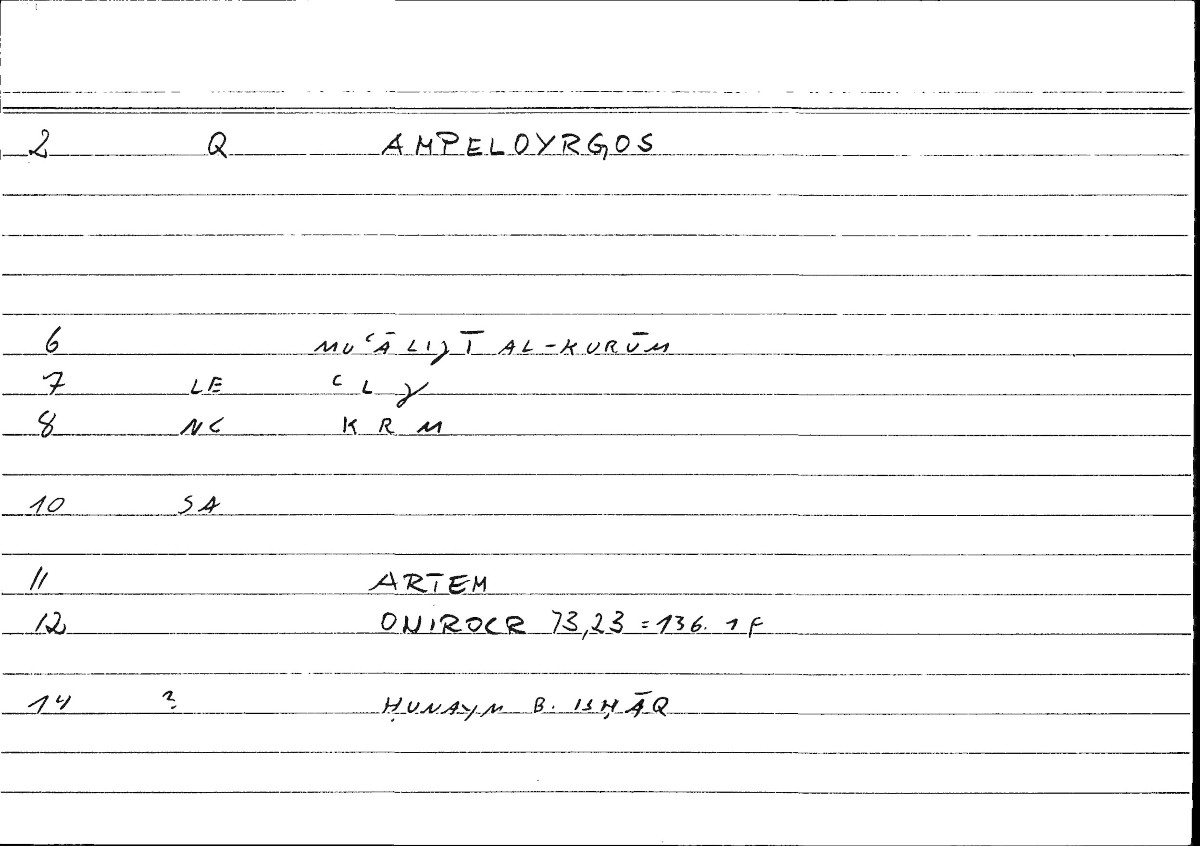 2 Q AMPELOYRGOS
6 MUʿĀLIǧĪ AL-KURŪM
7 LE ʿ L ǧ
8 NC K R M
10 SA
11 ARTEM
12 ONIROCR 73,23 = 136. 1 F
14 ? ḤUNAYN B. ISḤĀQ